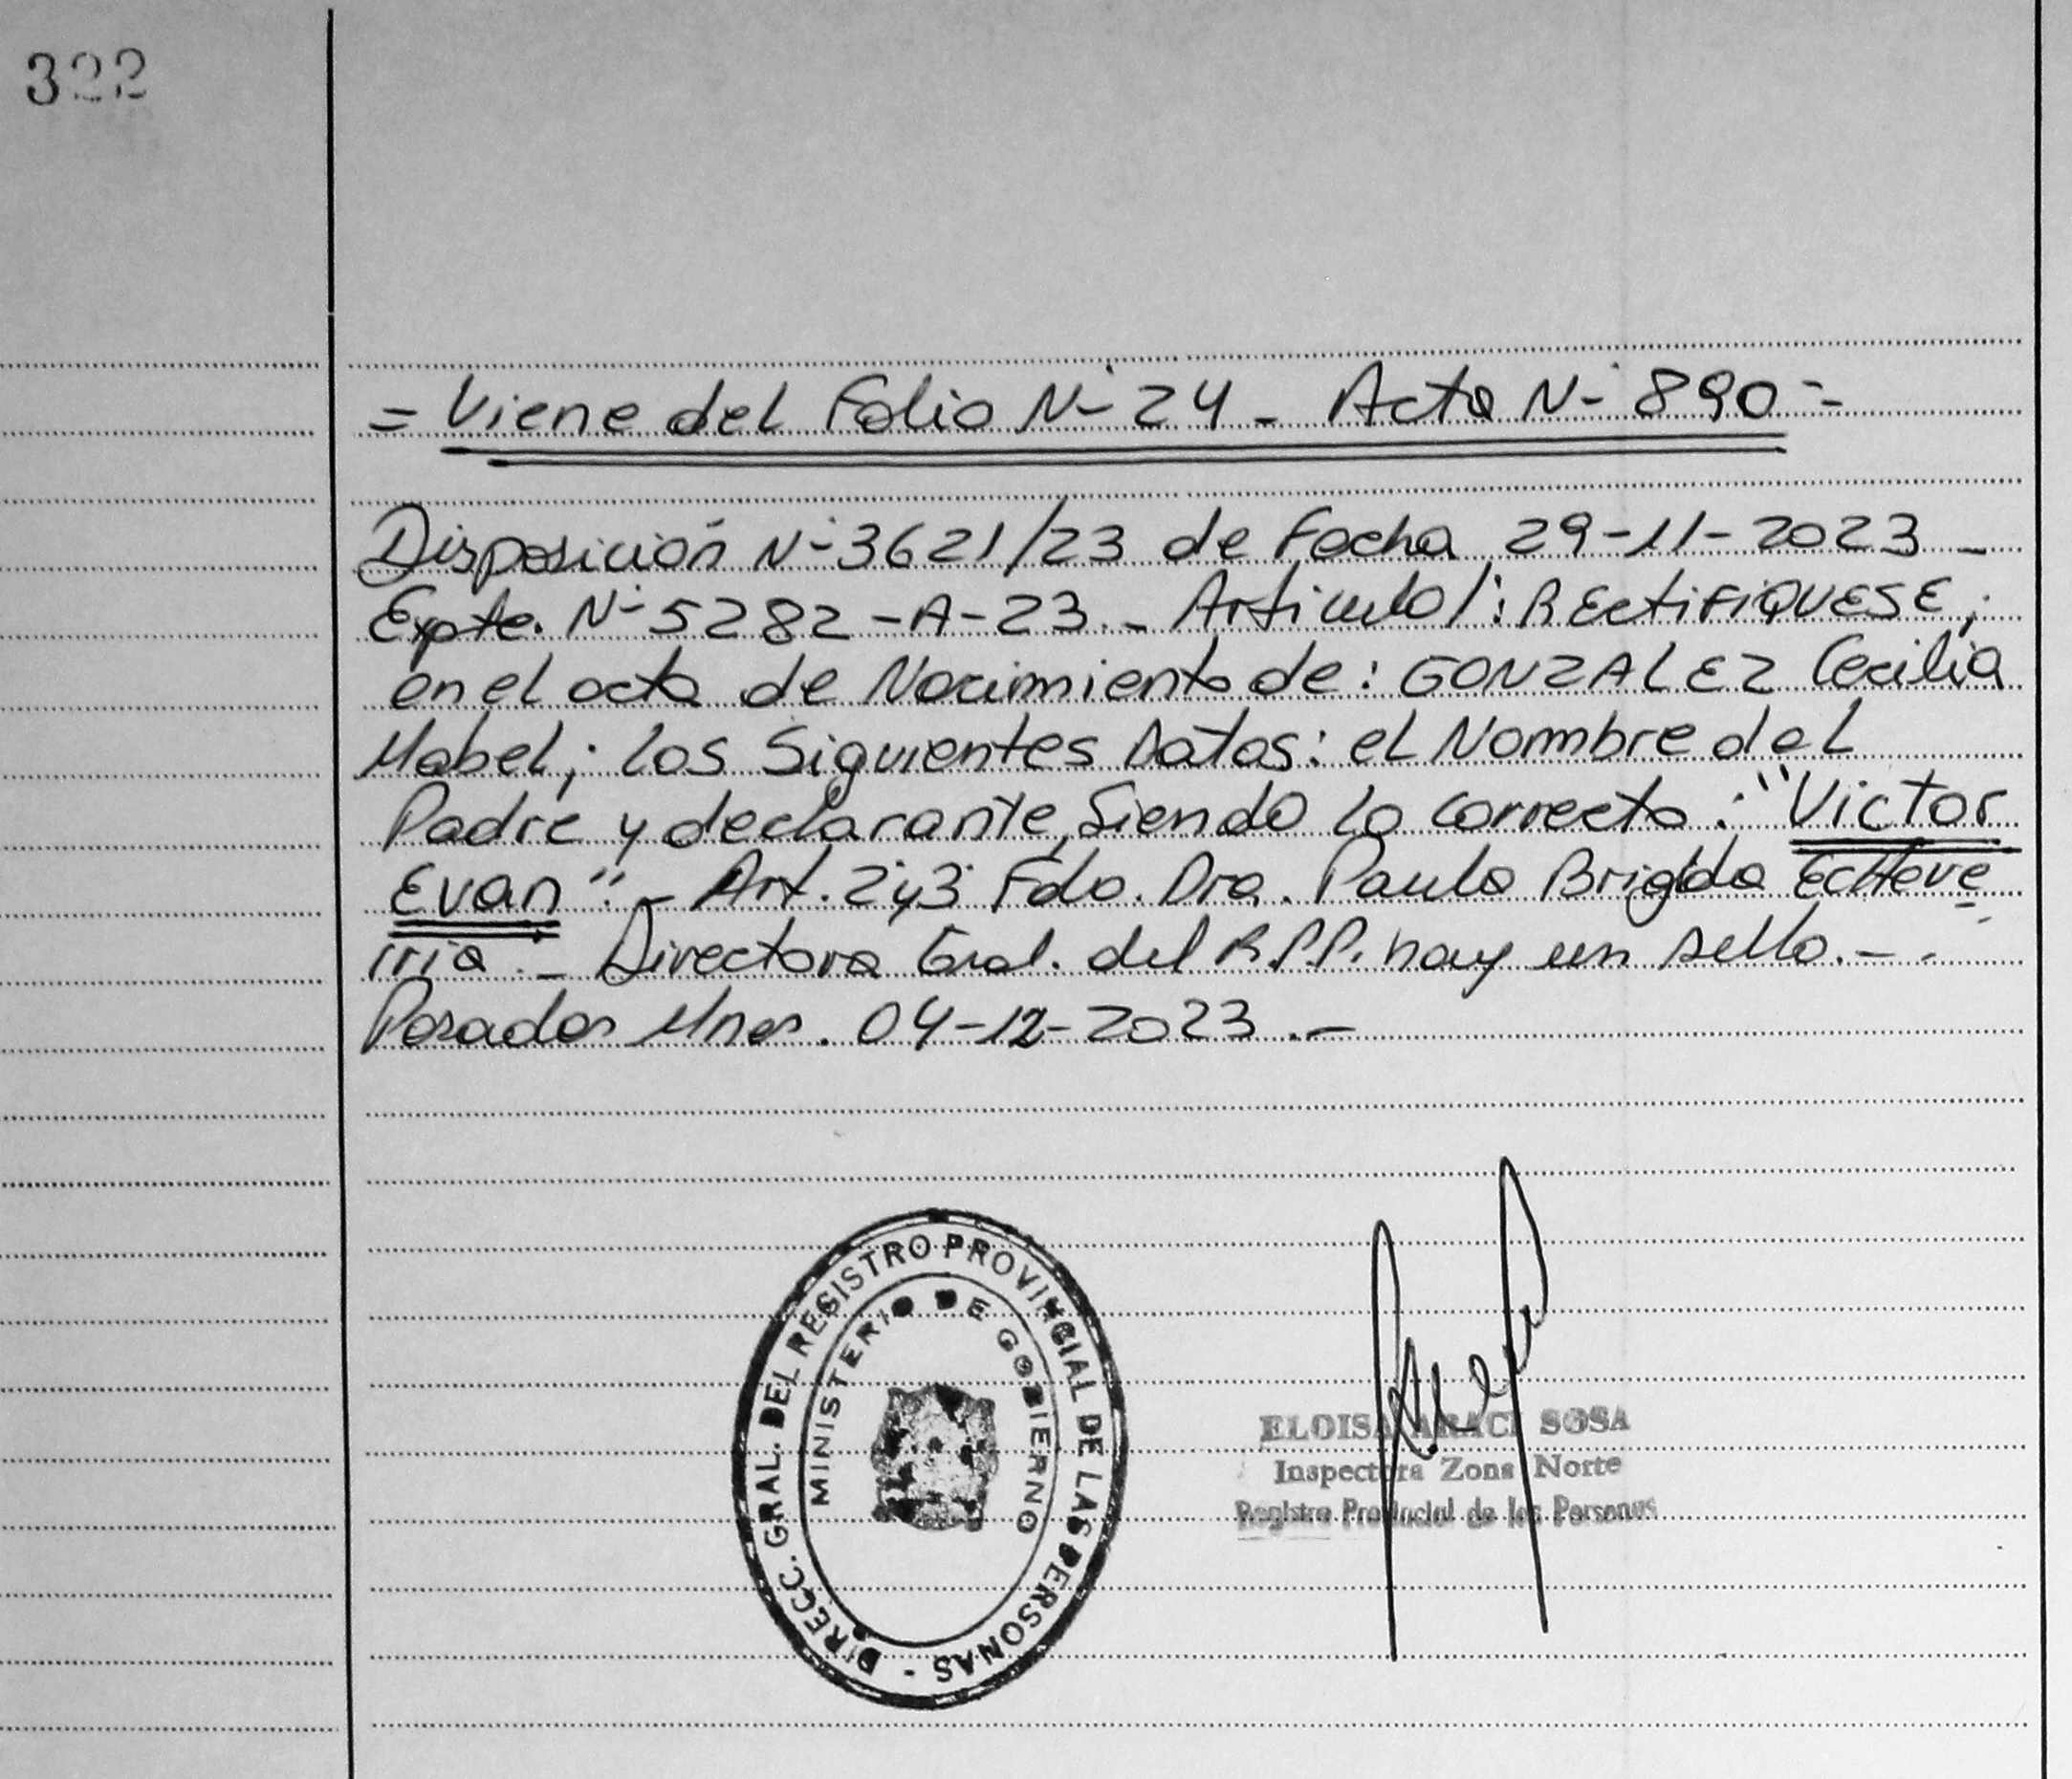 322
= Viene del Folio Nº 24 - Acta Nº 890 =
Disposición Nº 3621/23 de Fecha 29-11-2023 -
Expte. Nº 5282-A-23.- Articulo 1º: RECtiFIQUESE;
en el acta de Nacimiento de: GONZALEZ Cecilia
Mabel; los Siguientes Datos: el Nombre del
Padre y declarante, Siendo lo correcto: "Victor
Evan".- Art. 2º y 3º Fdo. Dra. Paula Brigida Echeve
rria.- Directora Gral. del R.P.P. hay un sello.-
Posadas Mnes. 04-12-2023.-
DIRECC. GRAL. DEL REGISTRO PROVINCIAL DE LAS PERSONAS -
MINISTERIO DE GOBIERNO
ELOISA ARACI SOSA
Inspectora Zona Norte
Registro Provincial de las Personas